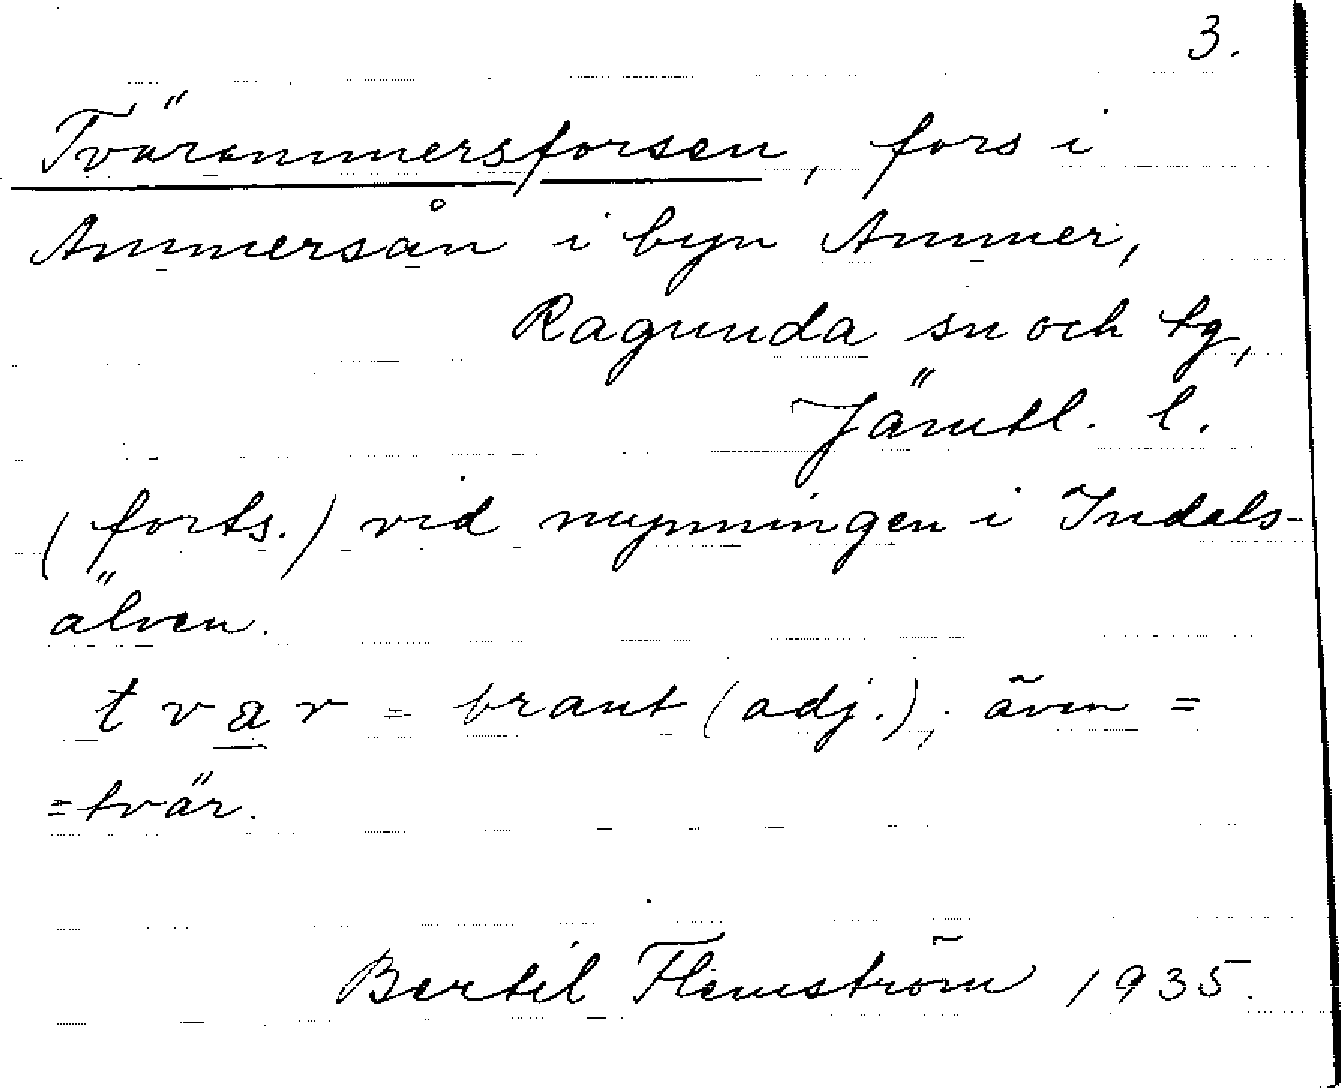 3.
Tvärammersforsen, fors i
Ammersån i byn Ammer,
Ragunda sn och tg,
Jämtl. l.
(forts.) vid mynningen i Indals-
älven.
tvar = brant (adj.), även =
=tvär.
Bertil Flemström 1935.